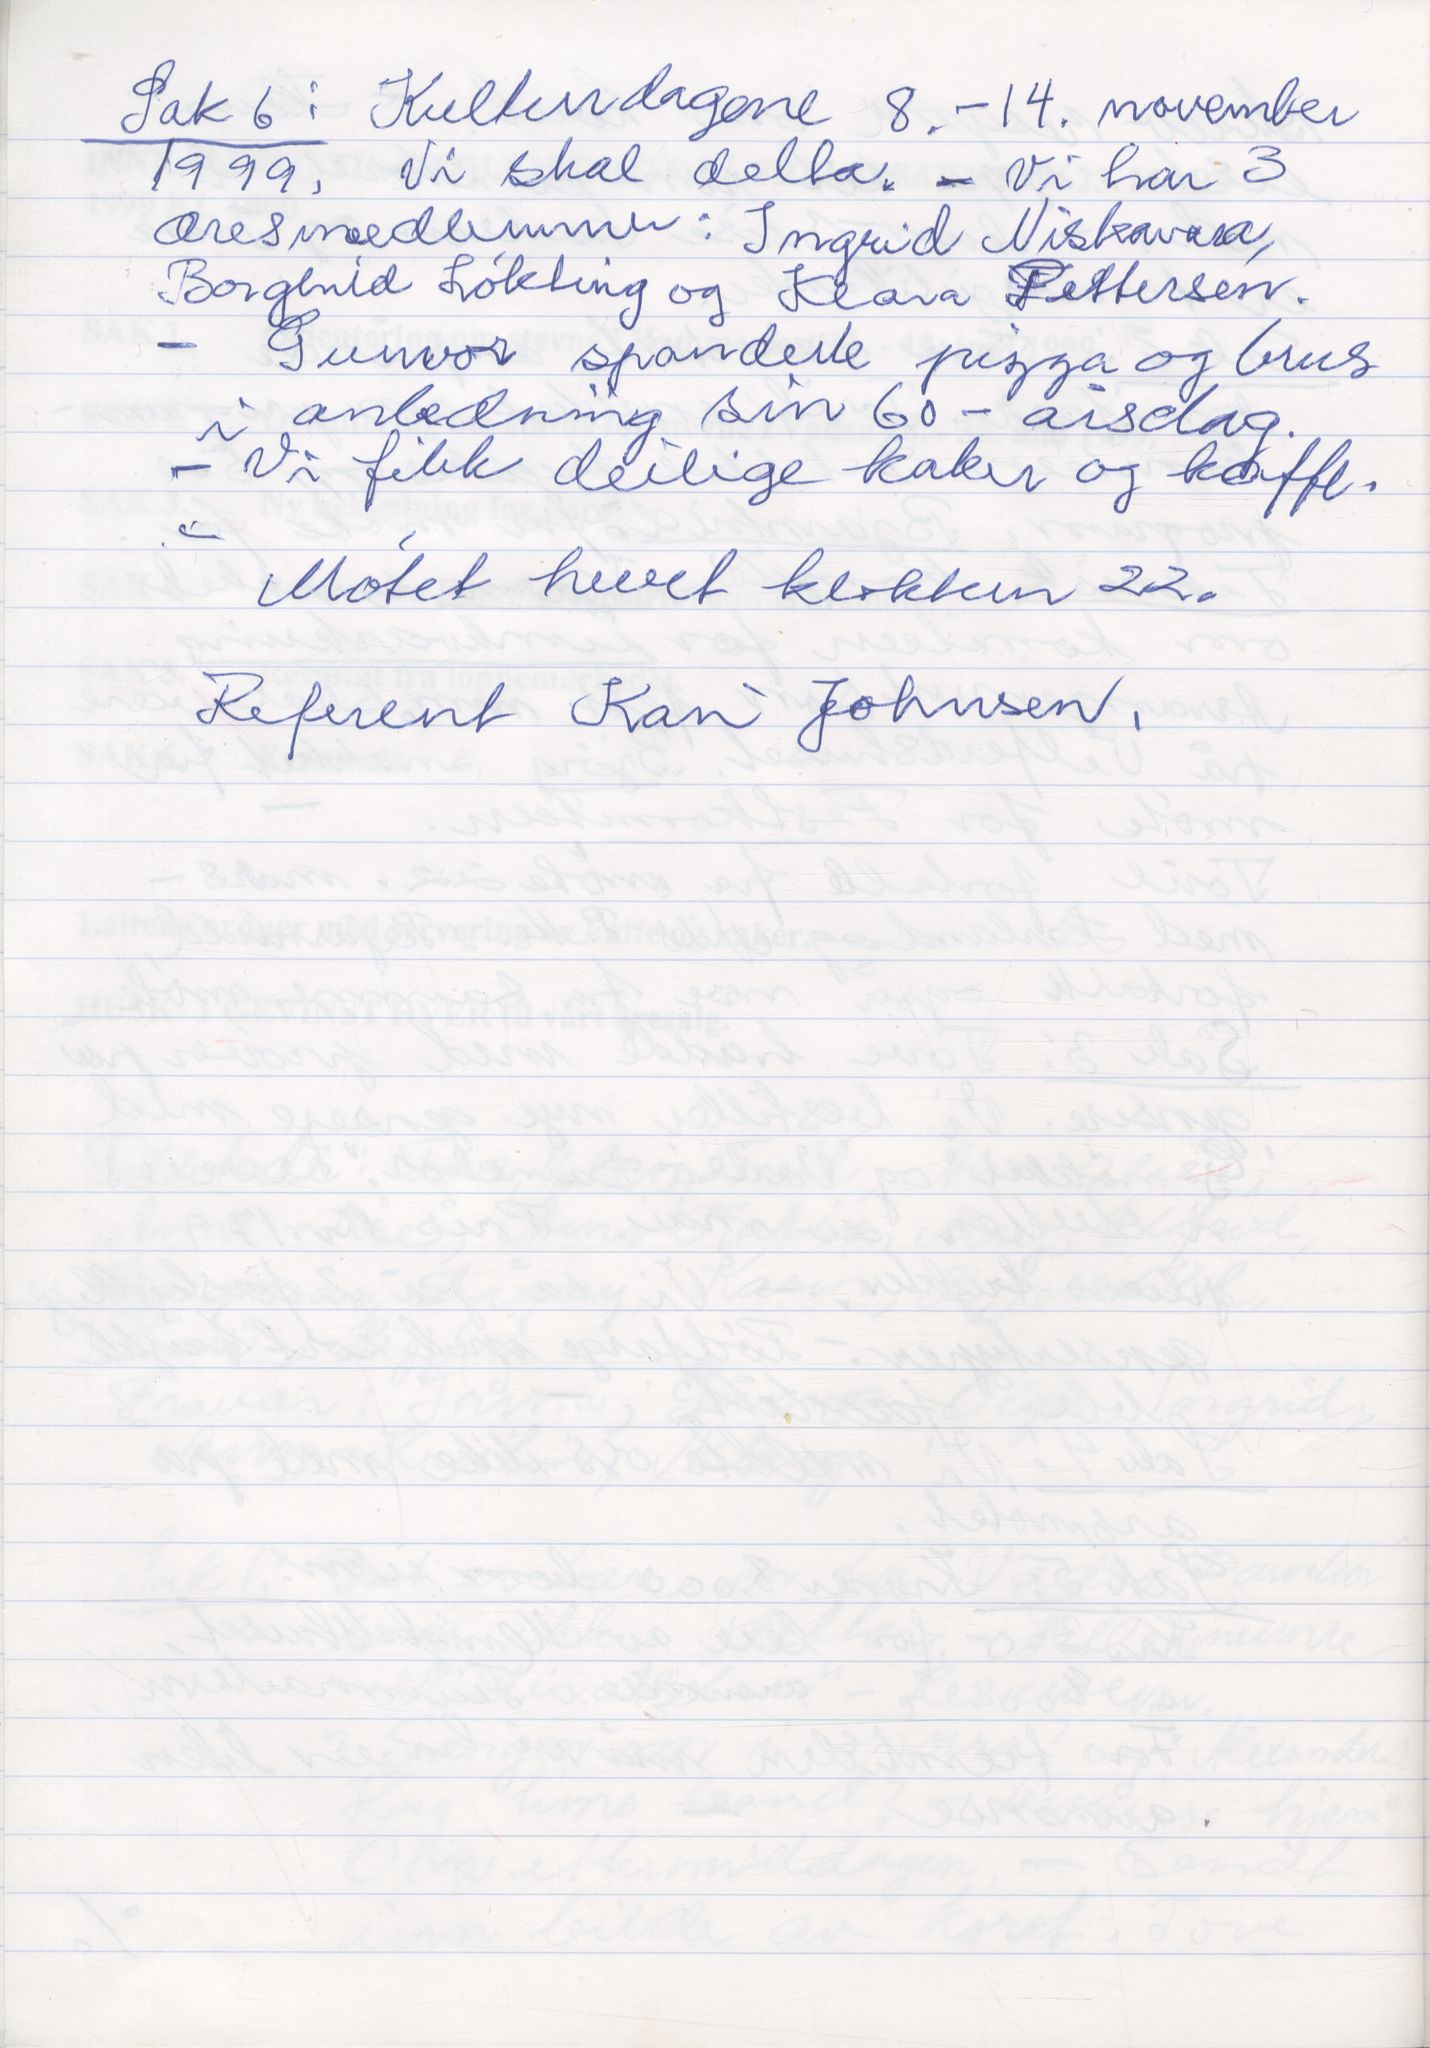 Sak 6: Kulturdagene 8.-14. november
1999. Vi skal delta. - Vi har 3
æresmedlemmer: Ingrid Niskavara,
Borghild Løkting og Klara Pettersen.
- Gunvor spanderte pizza og brus
i anledning sin 60-årsdag.
- Vi fikk deilige kaker og kaffe.
- Møtet hevet klokken 22.
Referent Kari Johnsen.